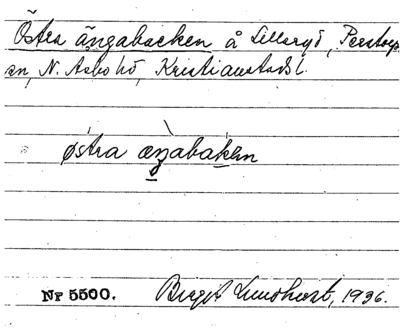 Östra ängabacken å Lillaryd, Perstorps
sn, N. Åsbo hd, Kristianstads l.
østra æŋabakən
Nr 5500. Birgit Lundqvist, 1936.